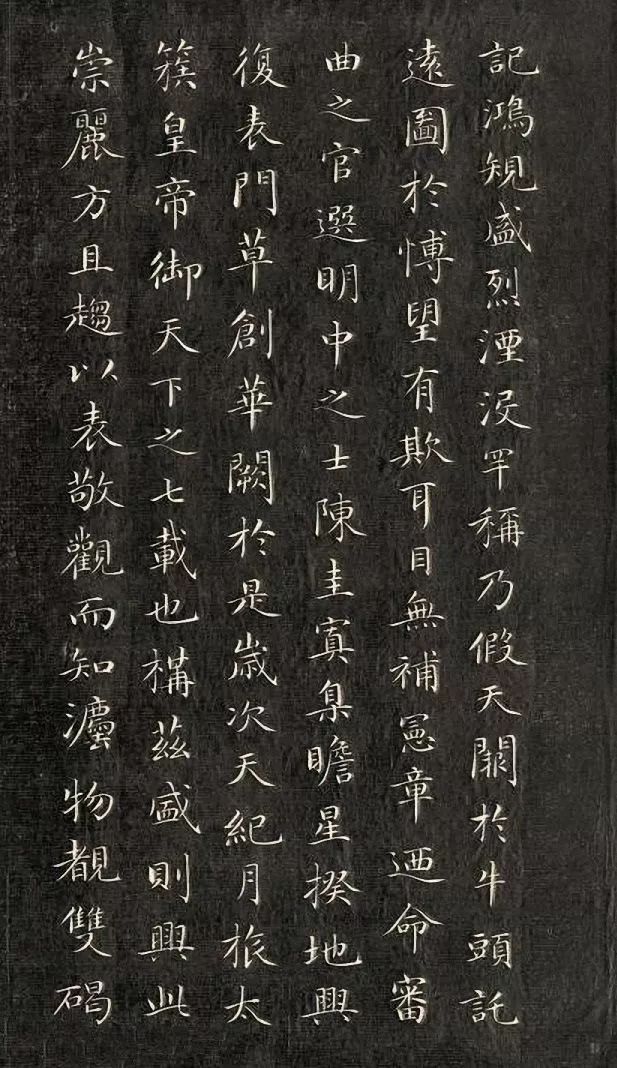 記鴻規盛烈湮没罕稱乃假天闕於牛頭託
遠圖於博望有欺耳目無補憲章迺命審
曲之官選明中之士陳圭寘臬瞻星揆地興
復表門草創華闕於是歲次天紀月旅太
簇皇帝御天下之七載也構茲盛則興此
崇麗方且趨以表敬觀而知法物覩雙碣